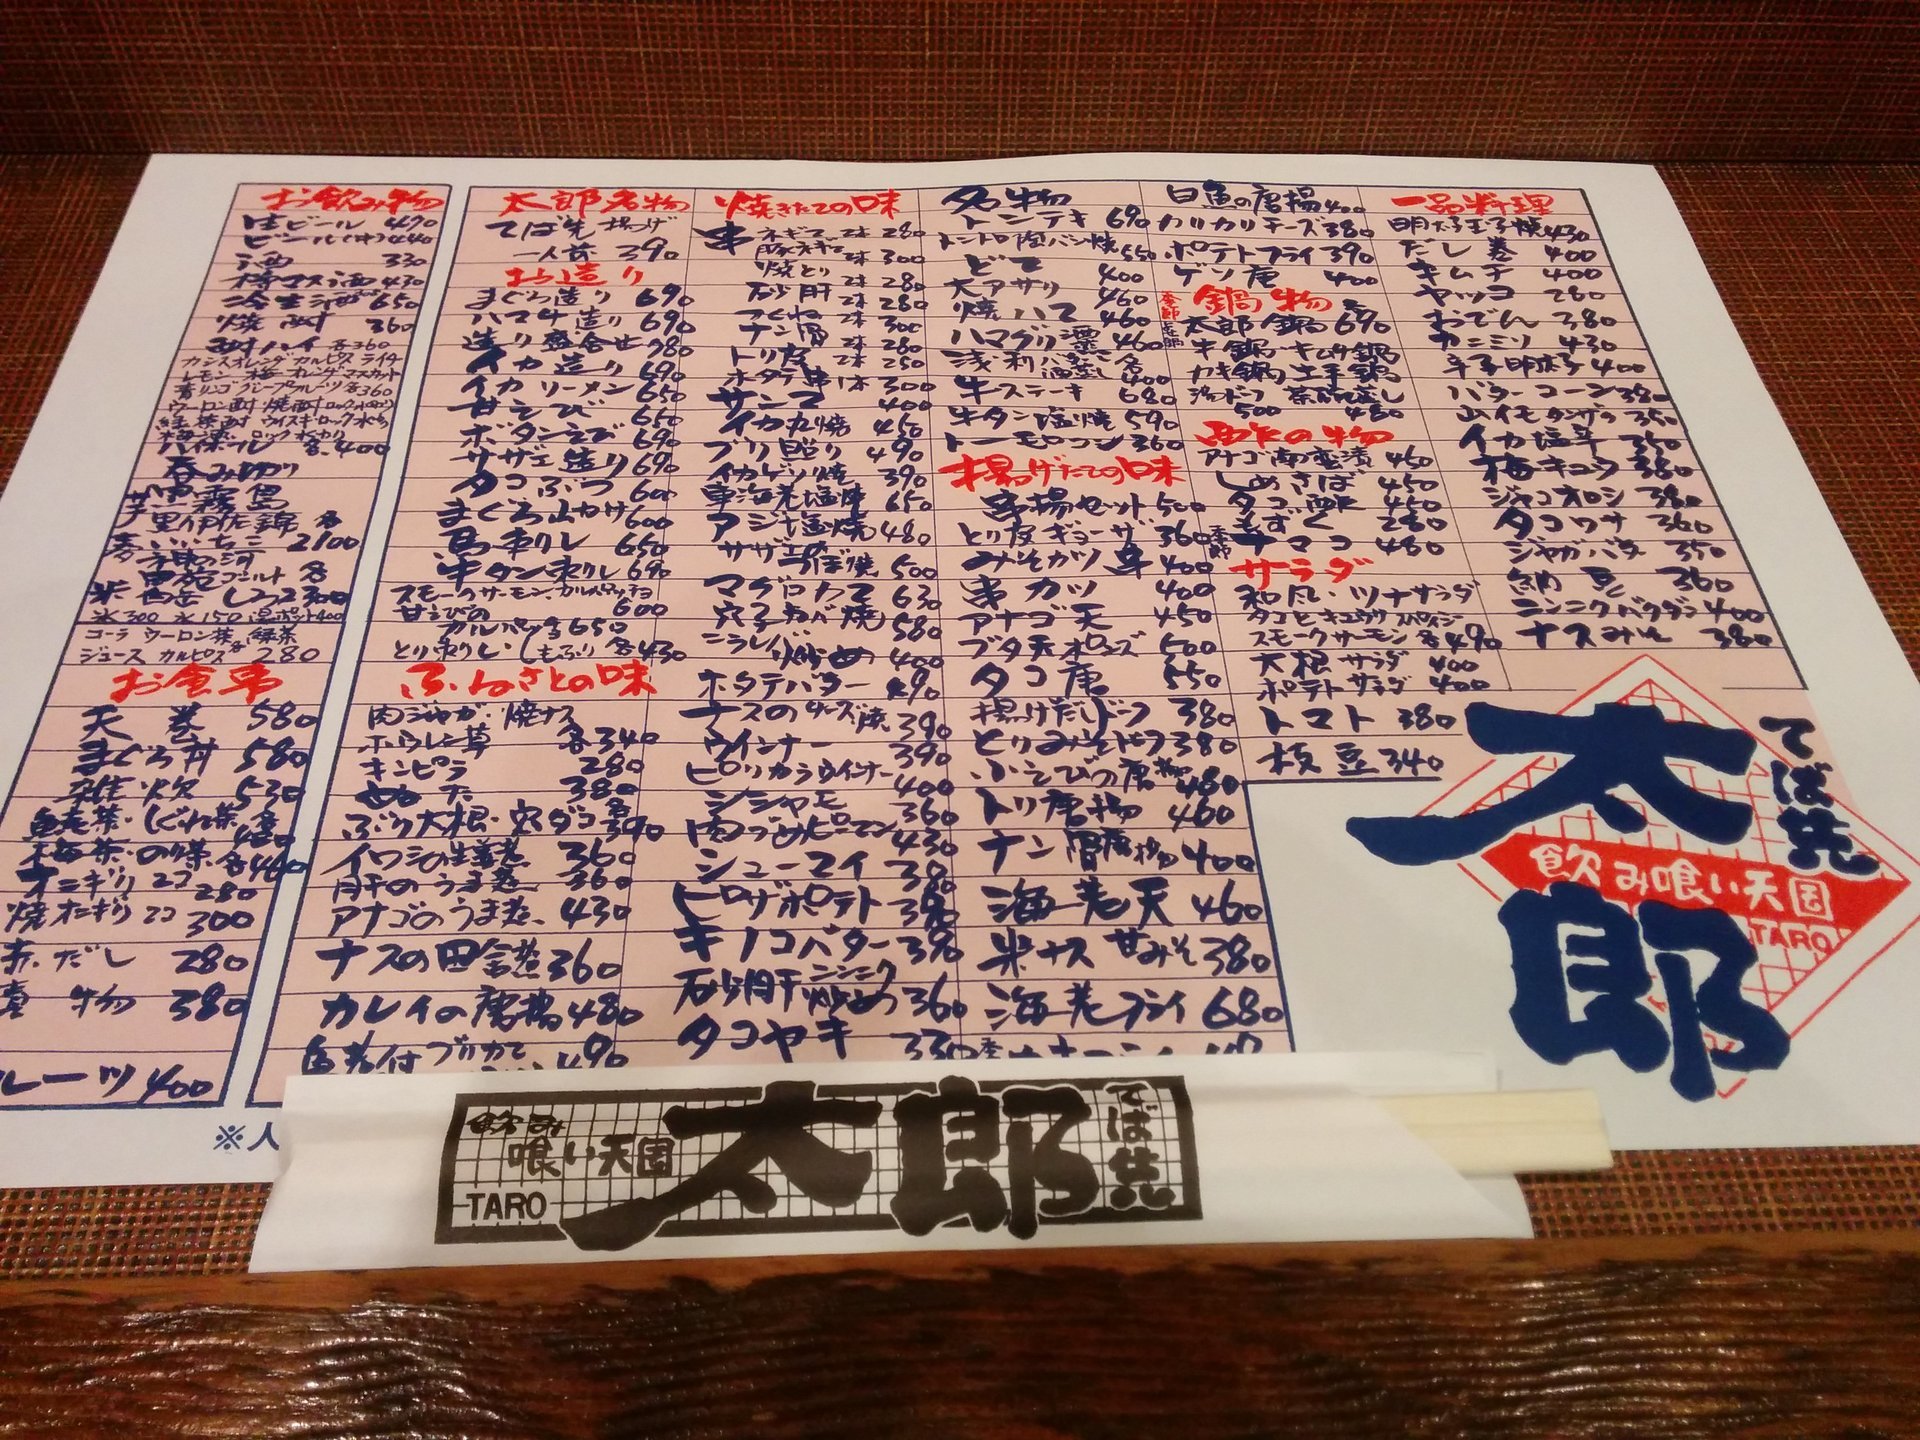 お飲み物
生ビール 490
ビール(中) 440
酒 330
樽マス酒 430
冷生酒 650
焼酎 360
酎ハイ 各360
カシスオレンジ カルピス ライチ
レモン 梅 オレンジ マスカット
青リンゴ グレープフルーツ 各360
ウーロン酎 焼酎ロック
緑茶酎 ウイスキーロック 水わり
ハイボール 各400
呑み切り
芋 黒霧島
芋 黒伊佐錦 各
麦 いいちこ 2100
コーラ ウーロン茶 緑茶
ジュース カルピス 各280
お食事
天巻 580
まぐろ丼 580
雑炊 530
梅茶・のり茶 各460
オニギリ 2コ 280
焼オニギリ 2コ 300
赤だし 280
漬物 380
ルーツ 400
太郎名物
てば先 揚げ
一人前 390
お造り
まぐろ造り 690
ハマチ造り 690
造り盛合せ 980
イカ造り 690
イカソーメン 650
甘えび 650
ボタンえび 690
サザエ造り 690
タコぶつ 600
まぐろ山かけ 600
馬刺し 650
牛タン刺し 690
スモークサーモンカルパッチョ 600
甘えびの
カルパッチョ 650
とり刺し・しもふり 各430
ふるさとの味
肉ジャガ・焼ナス
ホウレン草 各340
キンピラ 280
ぬた 380
ぶり大根・穴ダコ 各390
イワシ生姜煮 360
肝のうま煮 360
アナゴのうま煮 430
ナスの田舎煮 360
カレイの唐揚 480
焼きたての味
串 ネギマ 2本 280
豚ネギ 2本 300
焼とり 2本 280
砂肝 2本 280
つくね 2本 300
ナン骨 2本 280
トリ皮 2本 250
ホタテ串 1本 300
サンマ 400
イカ丸焼 450
ブリ照り 490
イカゲソ焼 390
車海老塩焼 650
アジ塩焼 480
サザエつぼ焼 500
マグロカマ 630
ニラレバ炒め 400
ホタテバター 490
ナスのチーズ焼 390
ウインナー 390
ピリカラウインナー 400
シシャモ 360
肉づめピーマン 430
シューマイ
ピザポテト
キノコバター
砂肝ニンニク炒め 360
タコヤキ 330
名物
トンテキ 690
トントロ陶バン焼 550
どて 400
大アサリ 460
焼ハマ 460
ハマグリ酒蒸し 460
浅利 バター 酒蒸し 各400
牛ステーキ 680
牛タン塩焼 590
トーモロコシ 360
揚げたての味
串揚セット 500
とり皮ギョーザ 360
みそカツ串 400
串カツ 400
アナゴ天 450
ブタ天オロシポンズ 500
タコ唐 550
揚げだしドーフ 380
とりみそドーフ 380
小えびの唐揚 480
トリ唐揚 460
ナン骨唐揚 400
海老天 460
米ナス甘みそ 380
海老フライ 680
白魚の唐揚 400
カリカリチーズ 380
ポテトフライ 390
ゲソ唐 400
季節 鍋物
太郎鍋 690
牛鍋・キムチ鍋
カキ鍋 土手鍋
湯ドーフ 500 茶碗蒸し 480
酢の物
アナゴ南蛮漬 450
しめさば 450
タコ酢 450
もずく 280
季節 ナマコ 480
サラダ
和風・ツナサラダ
タコとキュウリ スパイシー
スモークサーモン 各490
大根サラダ 400
ポテトサラダ 400
トマト 380
枝豆 340
一品料理
明太玉子焼 430
だし巻 400
キムチ 400
ヤッコ 280
おでん 380
カニミソ 430
辛子明太子 400
バターコーン 380
山イモタンザク 350
イカ塩辛 350
梅キュウ 380
ジャコオロシ 380
タコワサ 360
ジャガバタ 350
納豆 360
ニンニクバクダン 400
ナスみそ 380
てば先
太郎
飲み喰い天国
TARO
※人
飲み
喰い天国
TARO
太郎
てば先